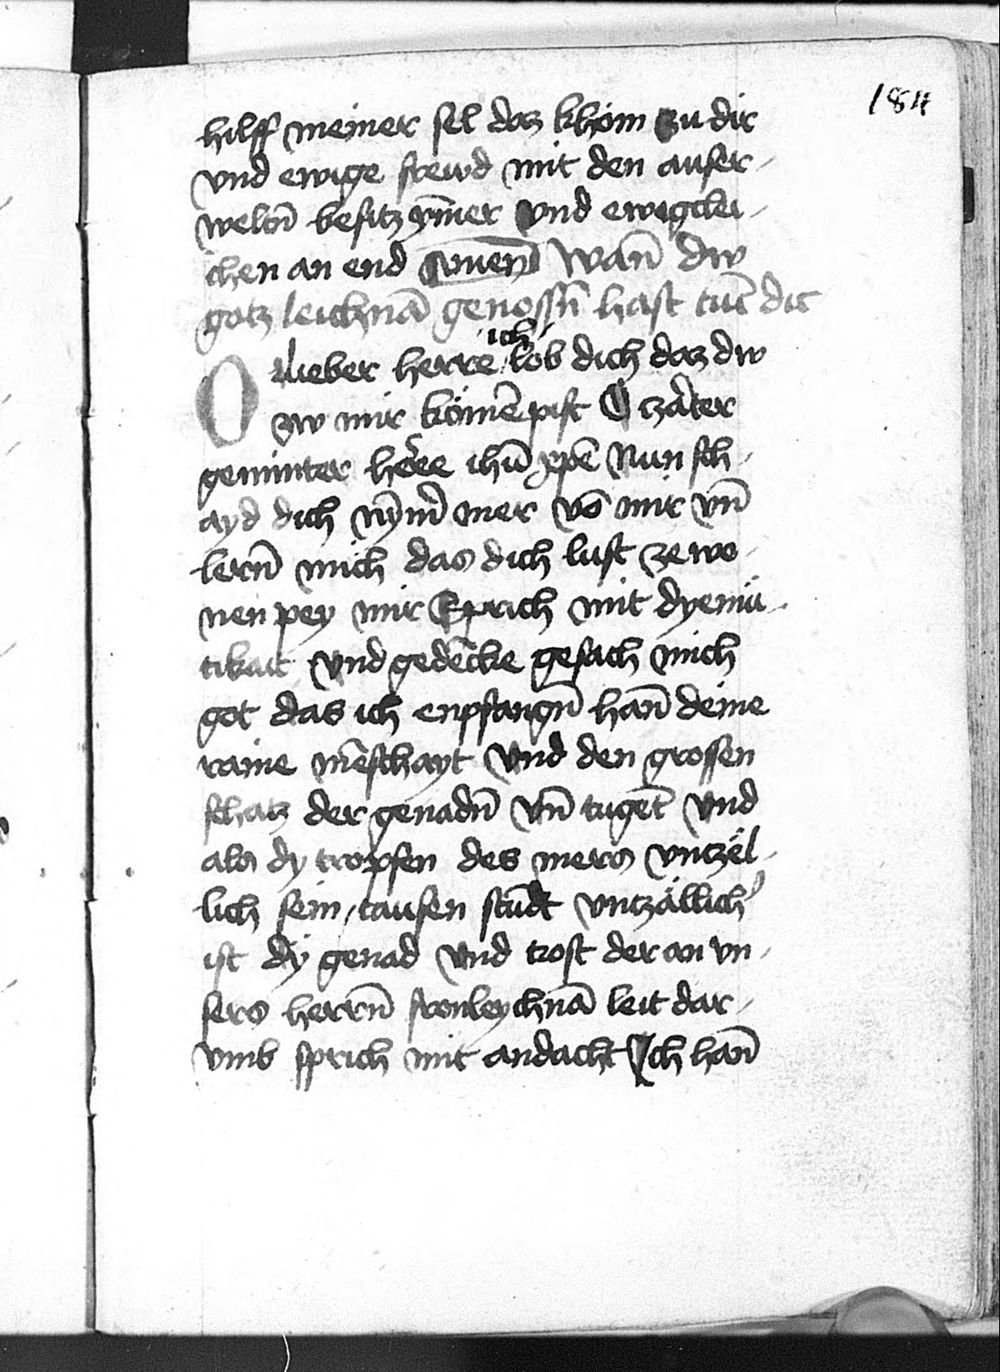 184
hilff meiner sel daz khöm zu dir
vnd ewige frewd mit den auser-
weltn̄ besitz ym̄er vnd ewigclei-
chen an end Amen Wan̄ dw
gotz leichnā genossn̄ hast
O lieber herre ich lob dich daz dw
zw mir kömē pist O zarter
geminter herre ihū xpē Nun sch-
ayd dich nym̄ mer vō mir vn̄
lern̄ mich das dich lust ze wo-
nen pey mir Sprich mit dyemü-
tikait vnd gedēcke gesach mich
got das ich enpfangn̄ han̄ deine
raine mēschayt vnd den grossen
schatz der genadn̄ vn̄ tugēt vnd
als dy tropfen des mers vntzel-
lich sein / tausen stūdt vntzällich
ist dy genad vnd trost der an vn-
sers herrn̄ fronleychnā leit dar-
vmb sprich mit andacht Ich han̄